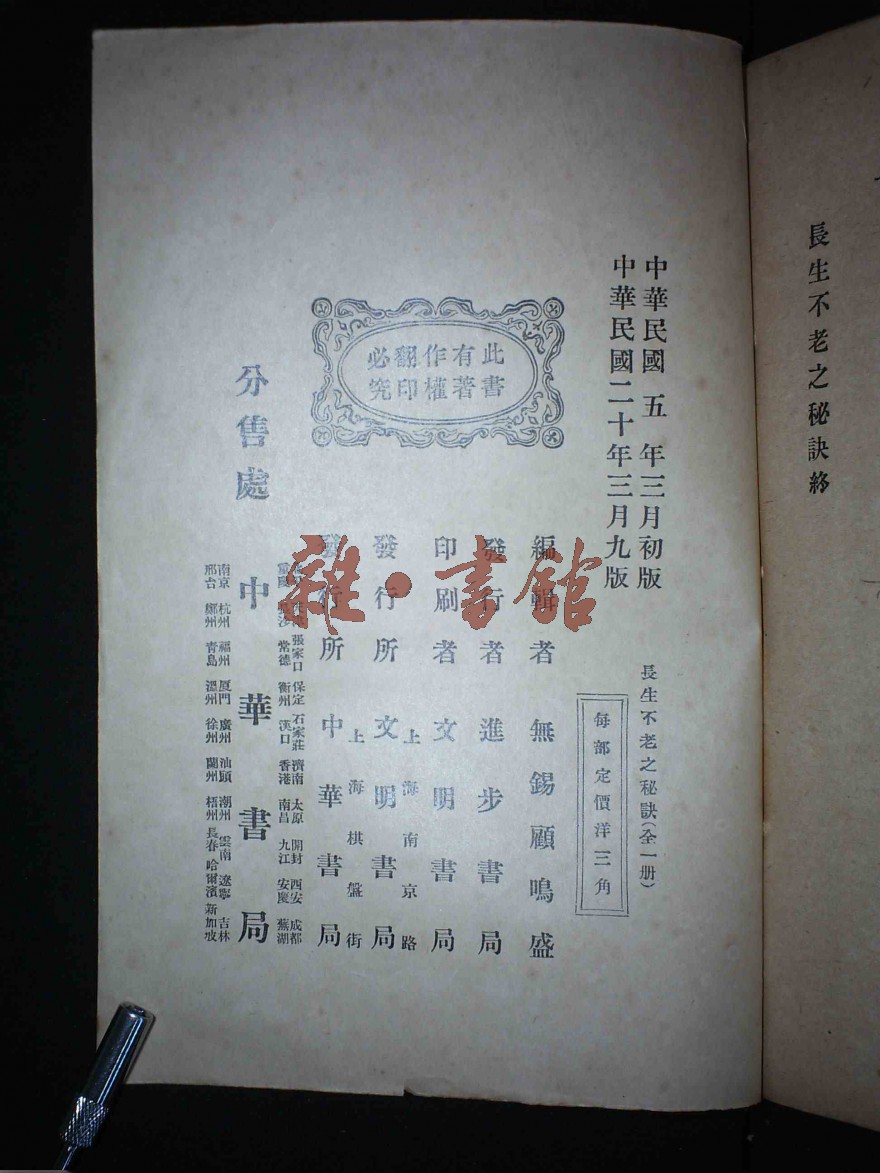 長生不老之秘訣終
中華民國 五 年三月初版
中華民國二十年三月九版
長生不老之秘訣(全一册)
每部定價洋三角
此書
有著
作權
翻印
必究
編輯者 無錫顧鳴盛
發行者 進步書局
印刷者 文明書局
上海南京路
發行所 文明書局
上海棋盤街
發行所 中華書局
分售處 中華書局
張家口 保定 石家莊 濟南 太原 開封 西安 成都
常德 衡州 漢口 香港 南昌 九江 安慶 蕪湖
南京 杭州 福州 厦門 廣州 汕頭 潮州 雲南 遼寧 吉林
邢台 鄭州 青島 溫州 徐州 蘭州 梧州 長春 哈爾濱 新加坡
雜·書館